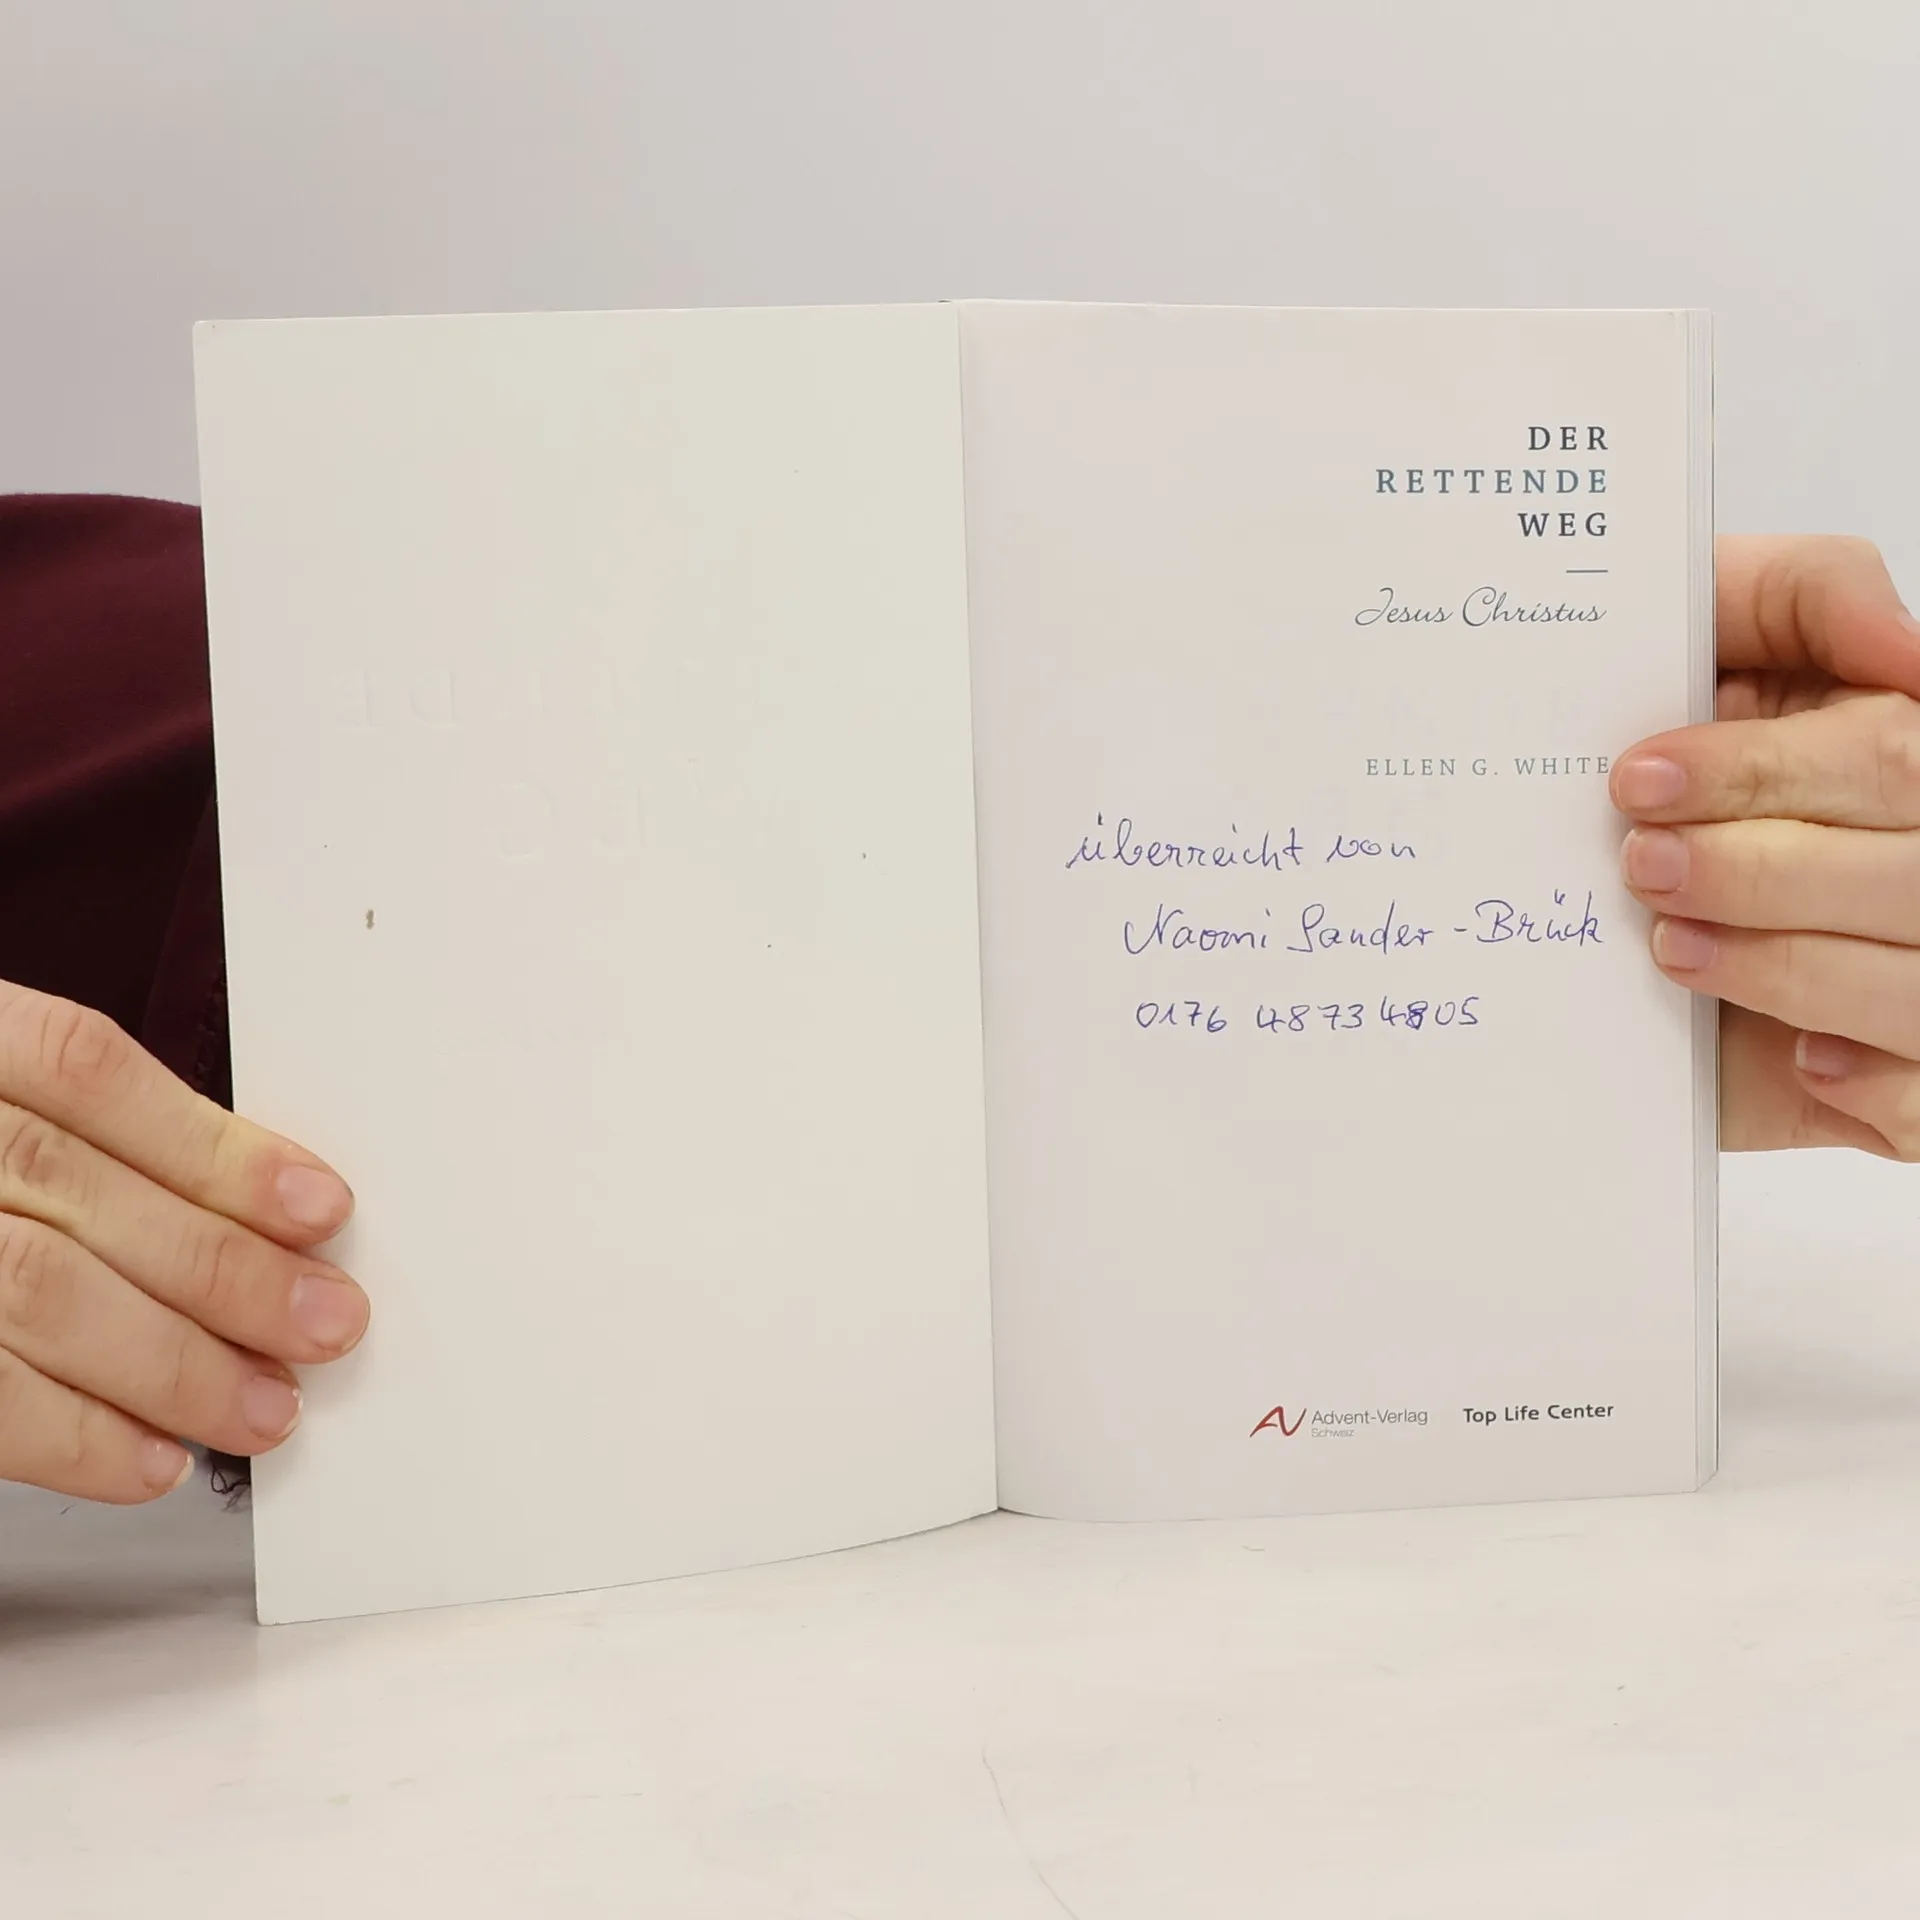 DER
RETTENDE
WEG
Jesus Christus
ELLEN G. WHITE
überreicht von
Naomi Sander-Brück
0176 48734805
Advent-Verlag
Schweiz
Top Life Center